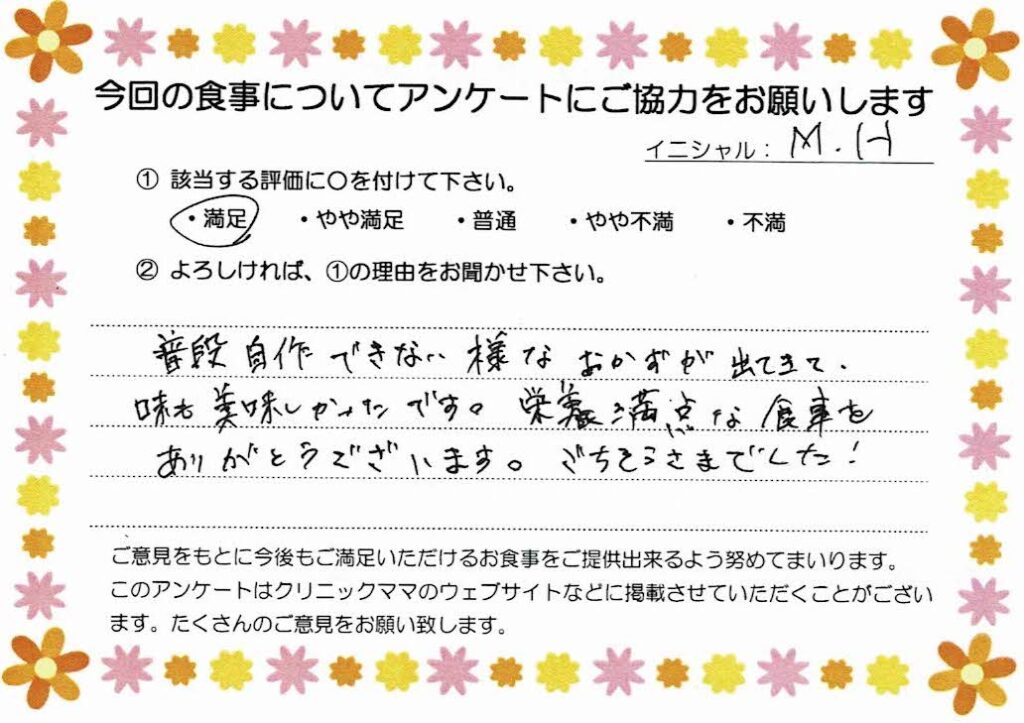 今回の食事についてアンケートにご協力をお願いします
イニシャル： M.H
① 該当する評価に〇を付けて下さい。
・満足 ・やや満足 ・普通 ・やや不満 ・不満
② よろしければ、①の理由をお聞かせ下さい。
普段自作できない様なおかずが出てきて、
味も美味しかったです。栄養満点な食事を
ありがとうございます。ごちそうさまでした！
ご意見をもとに今後もご満足いただけるお食事をご提供出来るよう努めてまいります。
このアンケートはクリニックママのウェブサイトなどに掲載させていただくことがござい
ます。たくさんのご意見をお願い致します。